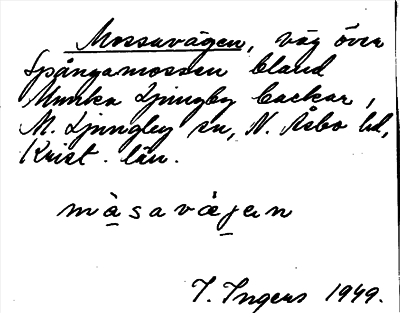 Mossavägen, väg över
Spångamossen bland
Munka Ljungby backar,
M. Ljungby sn, N. Åsbo hd,
Krist. län.
måsavägen
I. Ingers 1949.